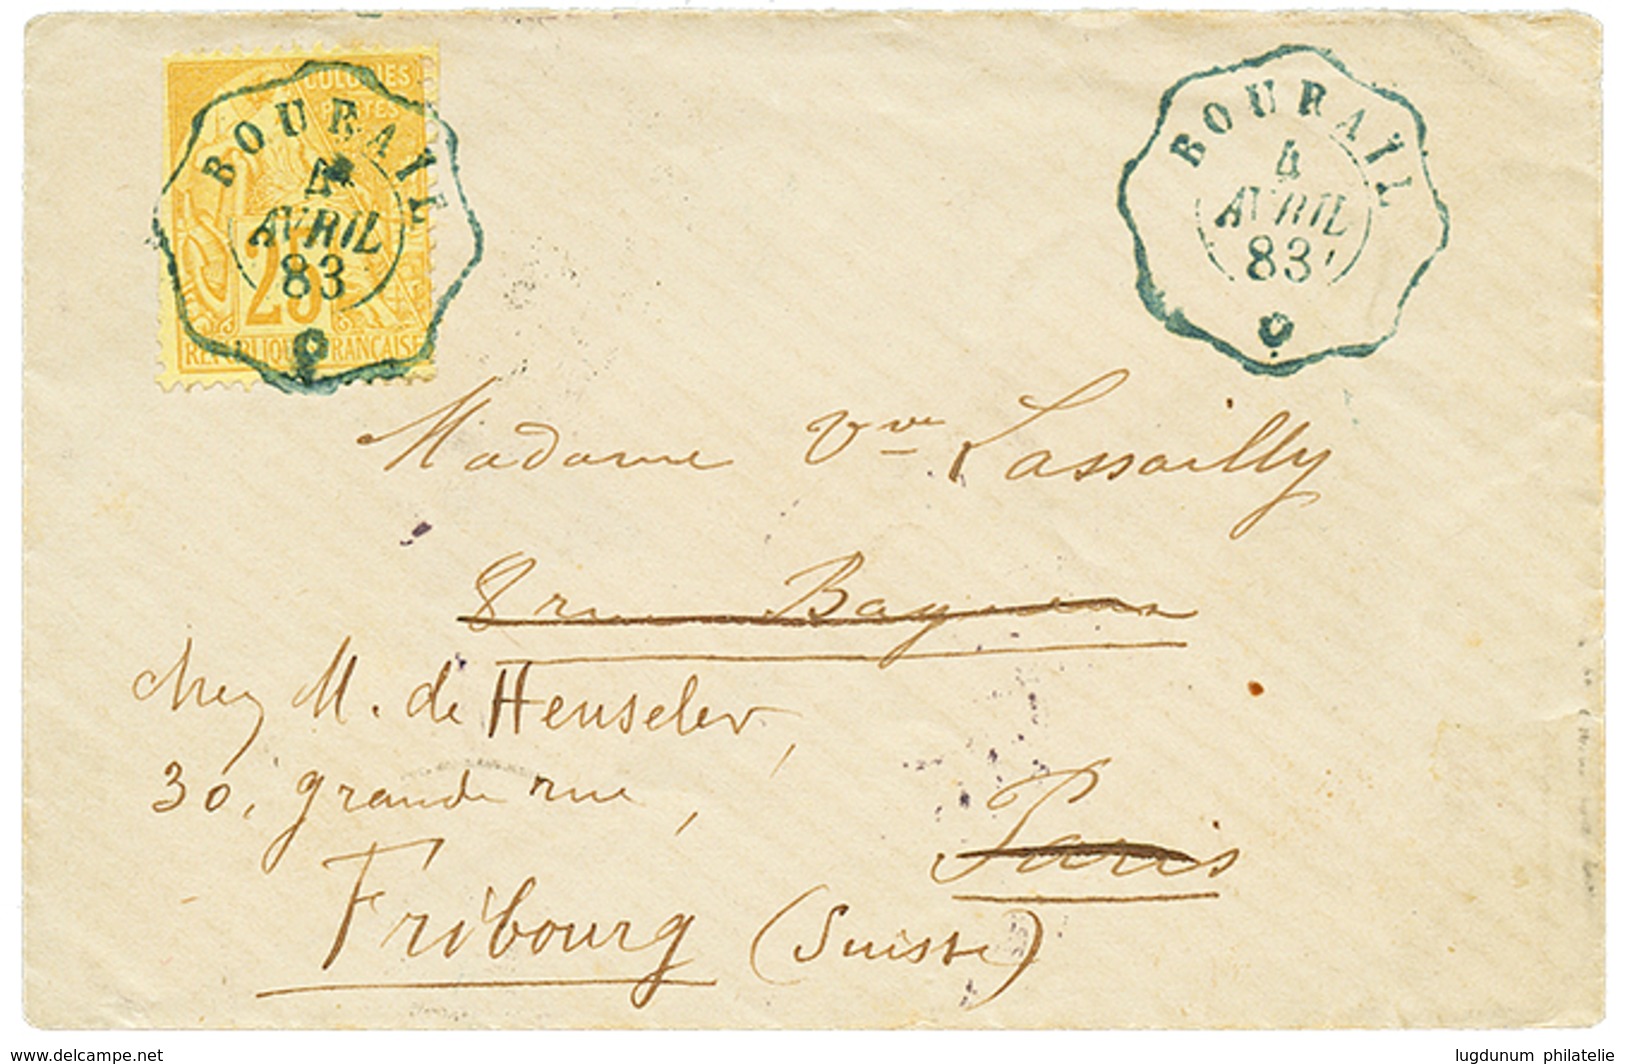 COLONIES
POSTES
25
REPUBLIQUE FRANCAISE
BOURAIL
4
AVRIL
83
BOURAIL
4
AVRIL
83
Madame Vve Lassailly
8 rue
chez M. de Henseler,
30, grande rue,
Paris
Fribourg (Suisse)
www.delcampe.net
lugdunum philatelie